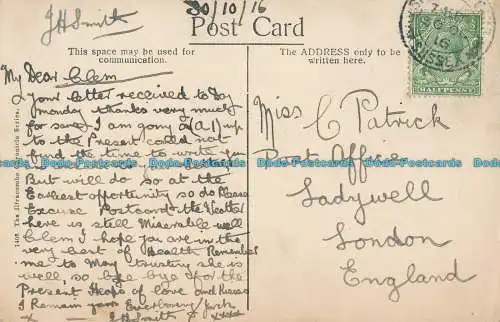 30/10/16
J H Smith
Post Card
This space may be used for
communication.
The ADDRESS only to be
written here.
My Dear Clem
your letter received to Day
Monday thanks very much
for same I am going (A.1) up
to the Present could not
find the time to write you
But will do so at the
Earliest opportunity so do Please
Excuse Postcard the Weather
here is still Miserable well
Clem I hope you are in the
very best of Health Remember
me to May trusting she is
well, so bye bye for the
Present Heaps of love and Kisses
I Remain yours Everloving
J H Smith
Miss C Patrick
Post Office
Ladywell
London
England
HALFPENNY
16
SUSSEX
Bids-Postcards